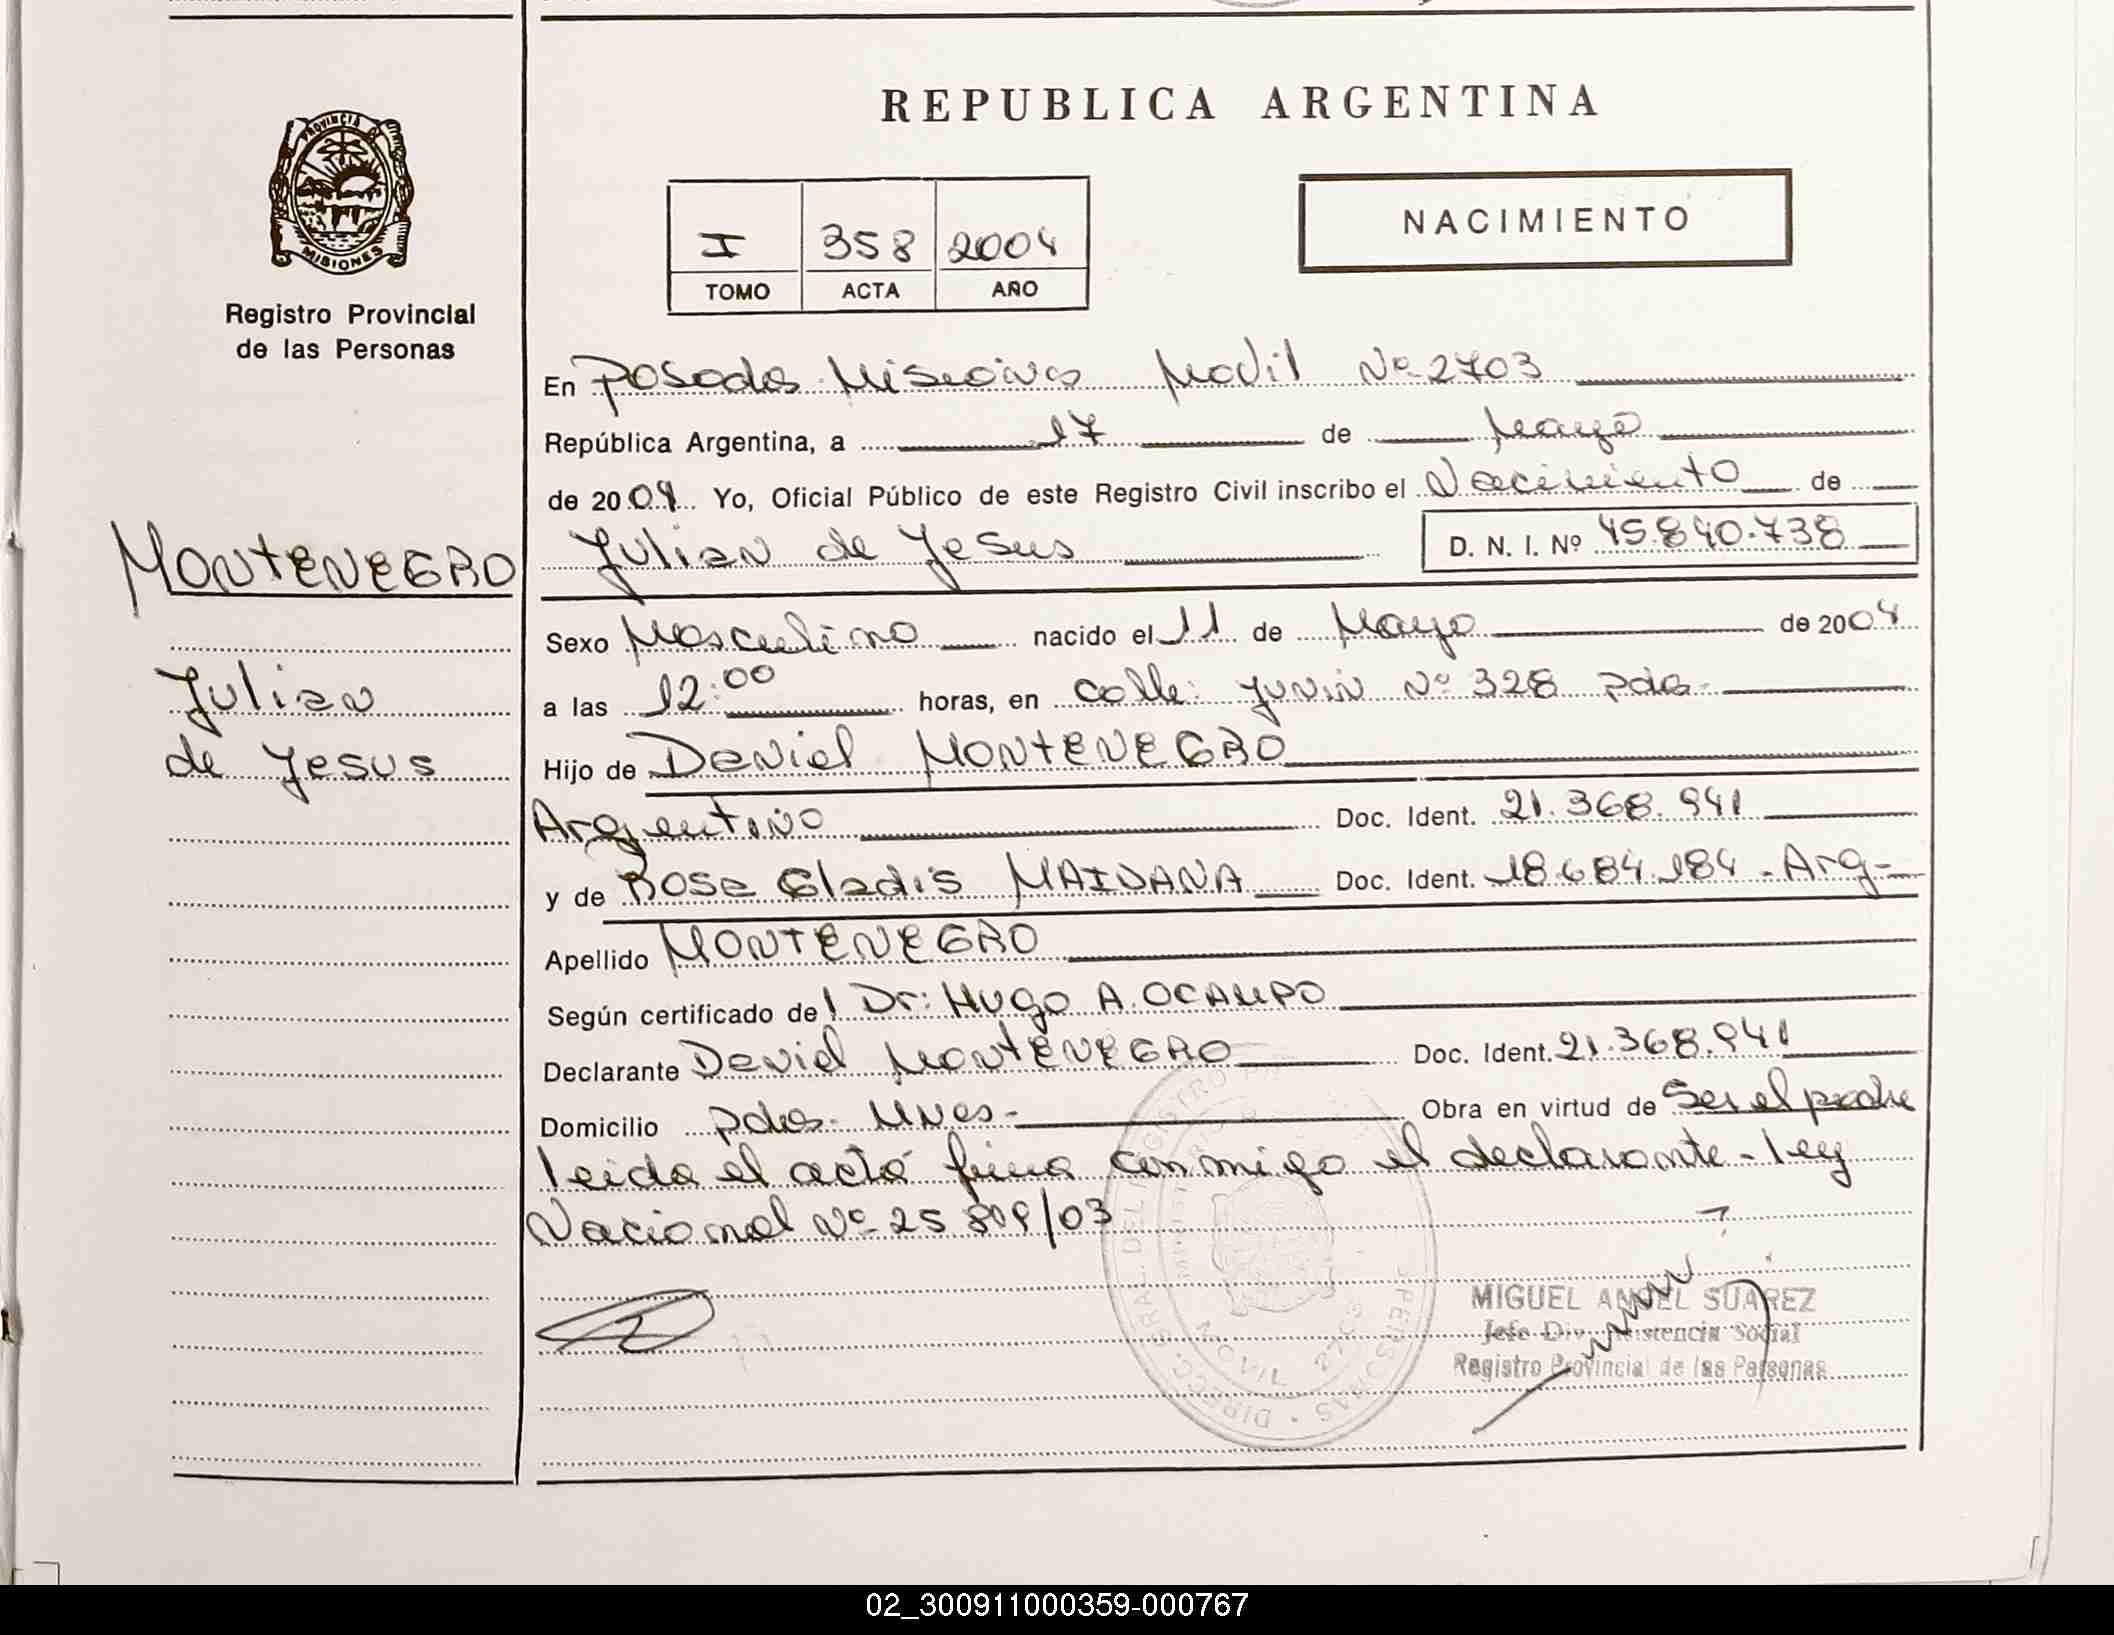 REPUBLICA ARGENTINA
PROVINCIA DE
MISIONES
Registro Provincial
de las Personas
I 358 2004
TOMO ACTA AÑO
NACIMIENTO
En Posadas Misiones Movil Nº 2703
República Argentina, a 17 de Mayo
de 2004 Yo, Oficial Público de este Registro Civil inscribo el Nacimiento de
MONTENEGRO
Julian de Jesus D. N. I. Nº 45.840.738
Sexo Masculino nacido el 11 de Mayo de 2004
Julian
de Jesus
a las 12:00 horas, en calle: Junin Nº 328 pdas-
Hijo de Daniel MONTENEGRO
Argentino Doc. Ident. 21.368.941
y de Rosa Gladis MAIDANA Doc. Ident. 18.684.184 - Arg-
Apellido MONTENEGRO
Según certificado de l Dr: Hugo A. OCAMPO
Declarante Daniel MONTENEGRO Doc. Ident. 21.368.941
Domicilio pdas- Mnes- Obra en virtud de Ser el padre
leida el acta firma conmigo el declarante - ley
Nacional Nº 25.809/03
DIRECC. GRAL. DEL REGISTRO
PERSONAS
MOVIL 2703
MIGUEL ANGEL SUAREZ
Jefe Div. Asistencia Social
Registro Provincial de las Personas
02_300911000359-000767